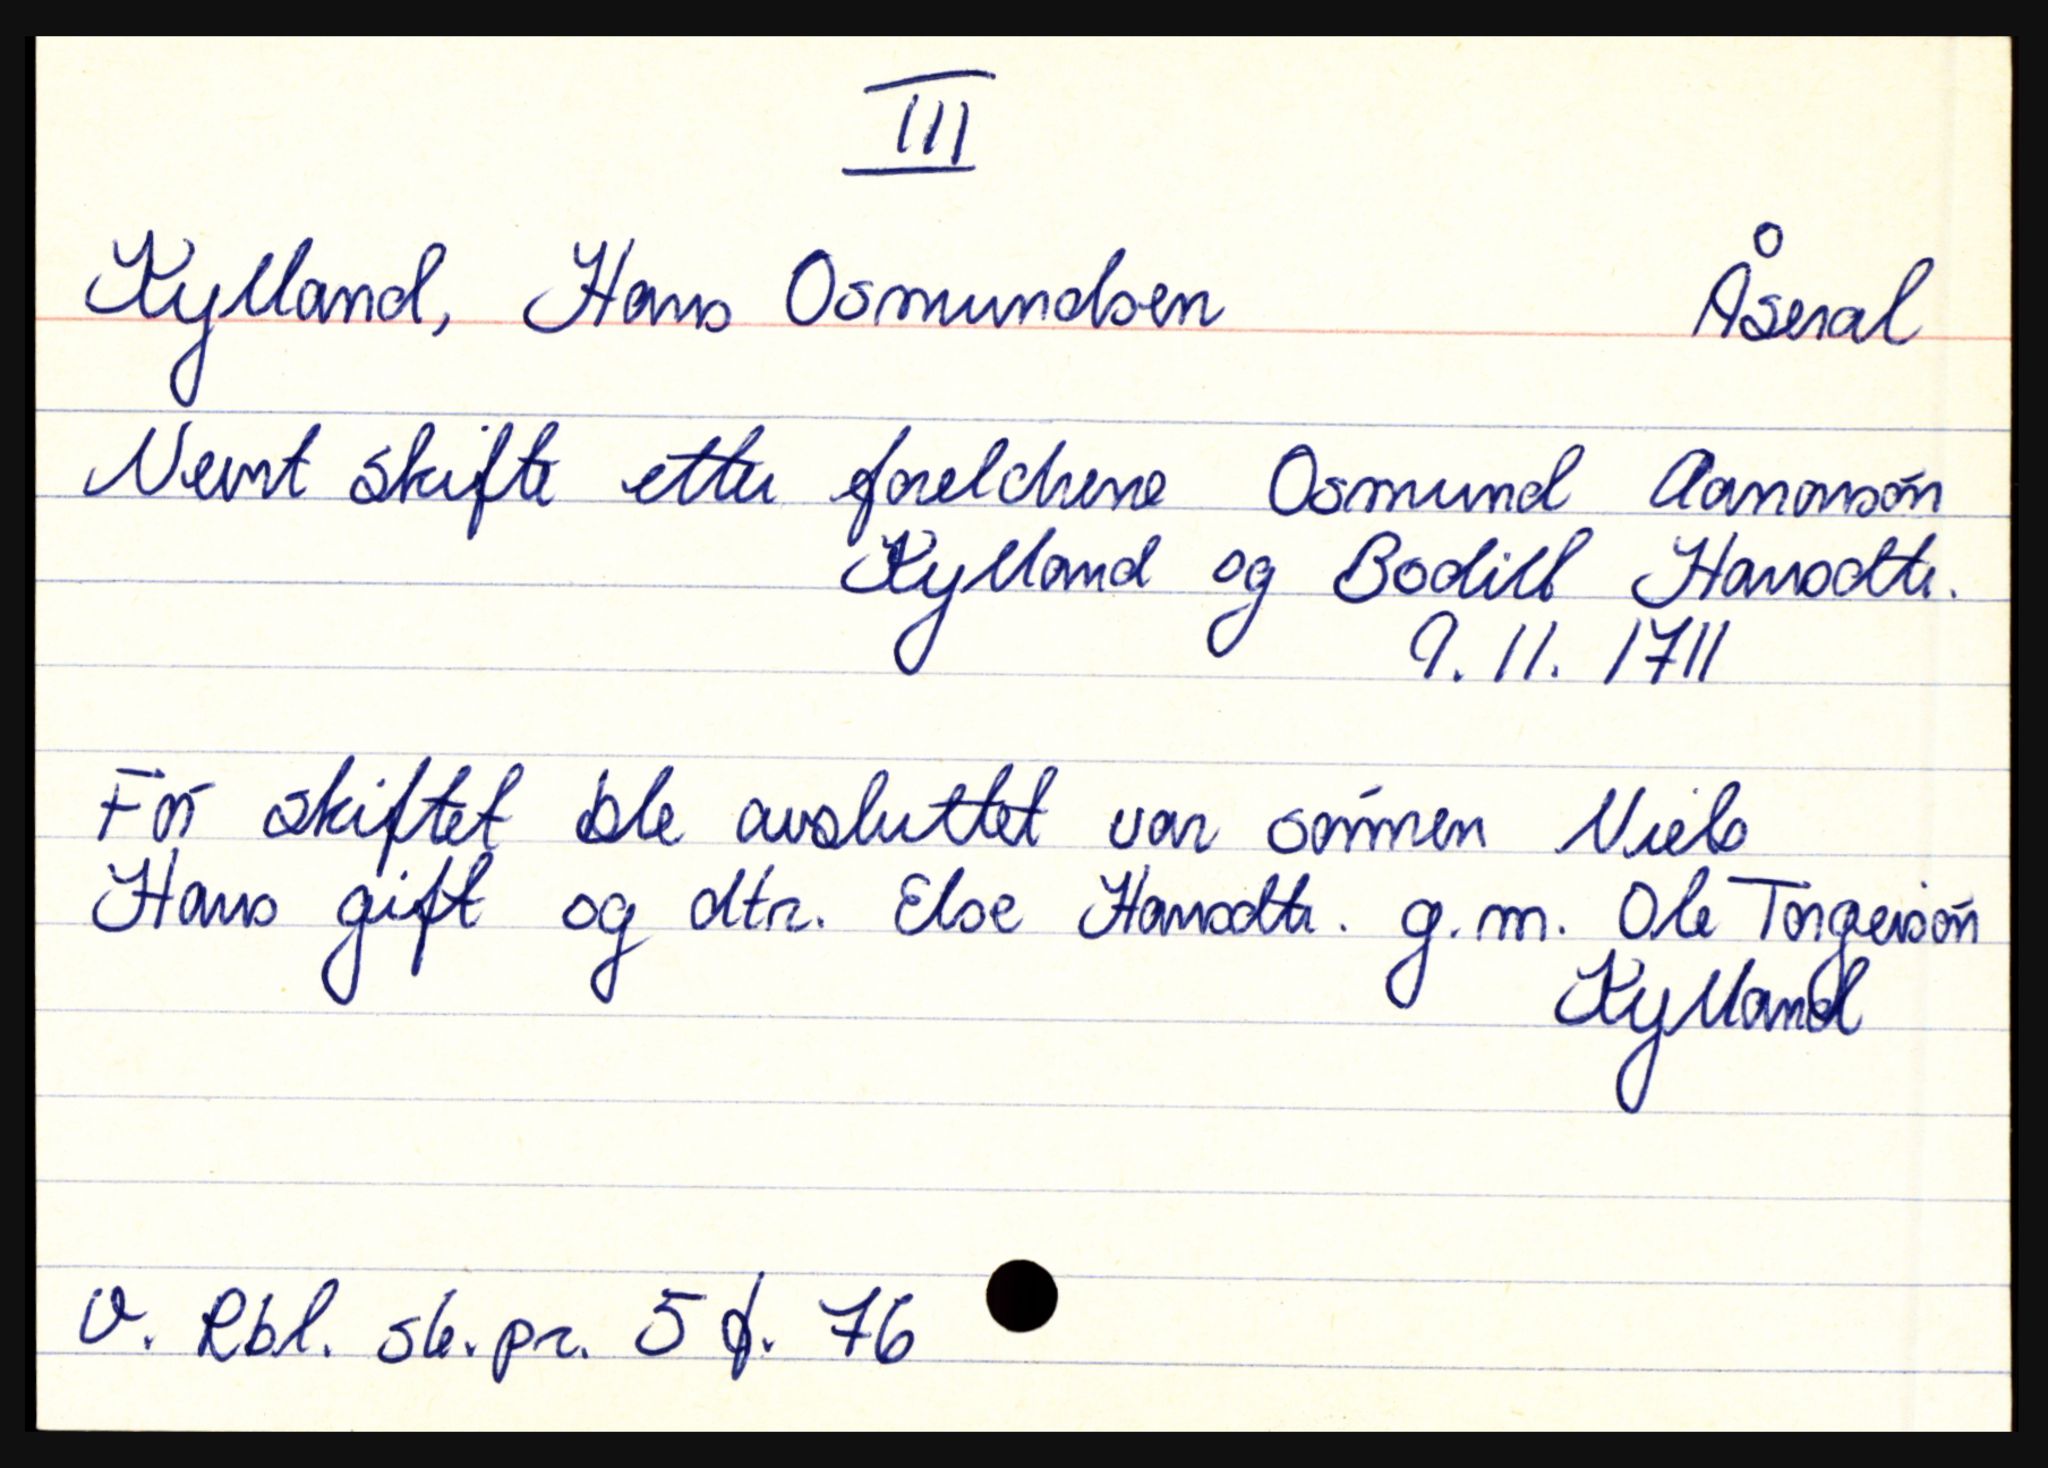 III
Kylland, Hans Osmundsen Åseral
Nevnt skifte etter foreldrene Osmund Aanonsøn
Kylland og Bodill Hansdtr.
9. 11. 1711
Før skiftet ble avsluttet var sønnen Niels
Hans gift og dtr. Else Hansdtr. g.m. Ole Torgersøn
Kylland
V. Rbl. sk. pr. 5 f. 76